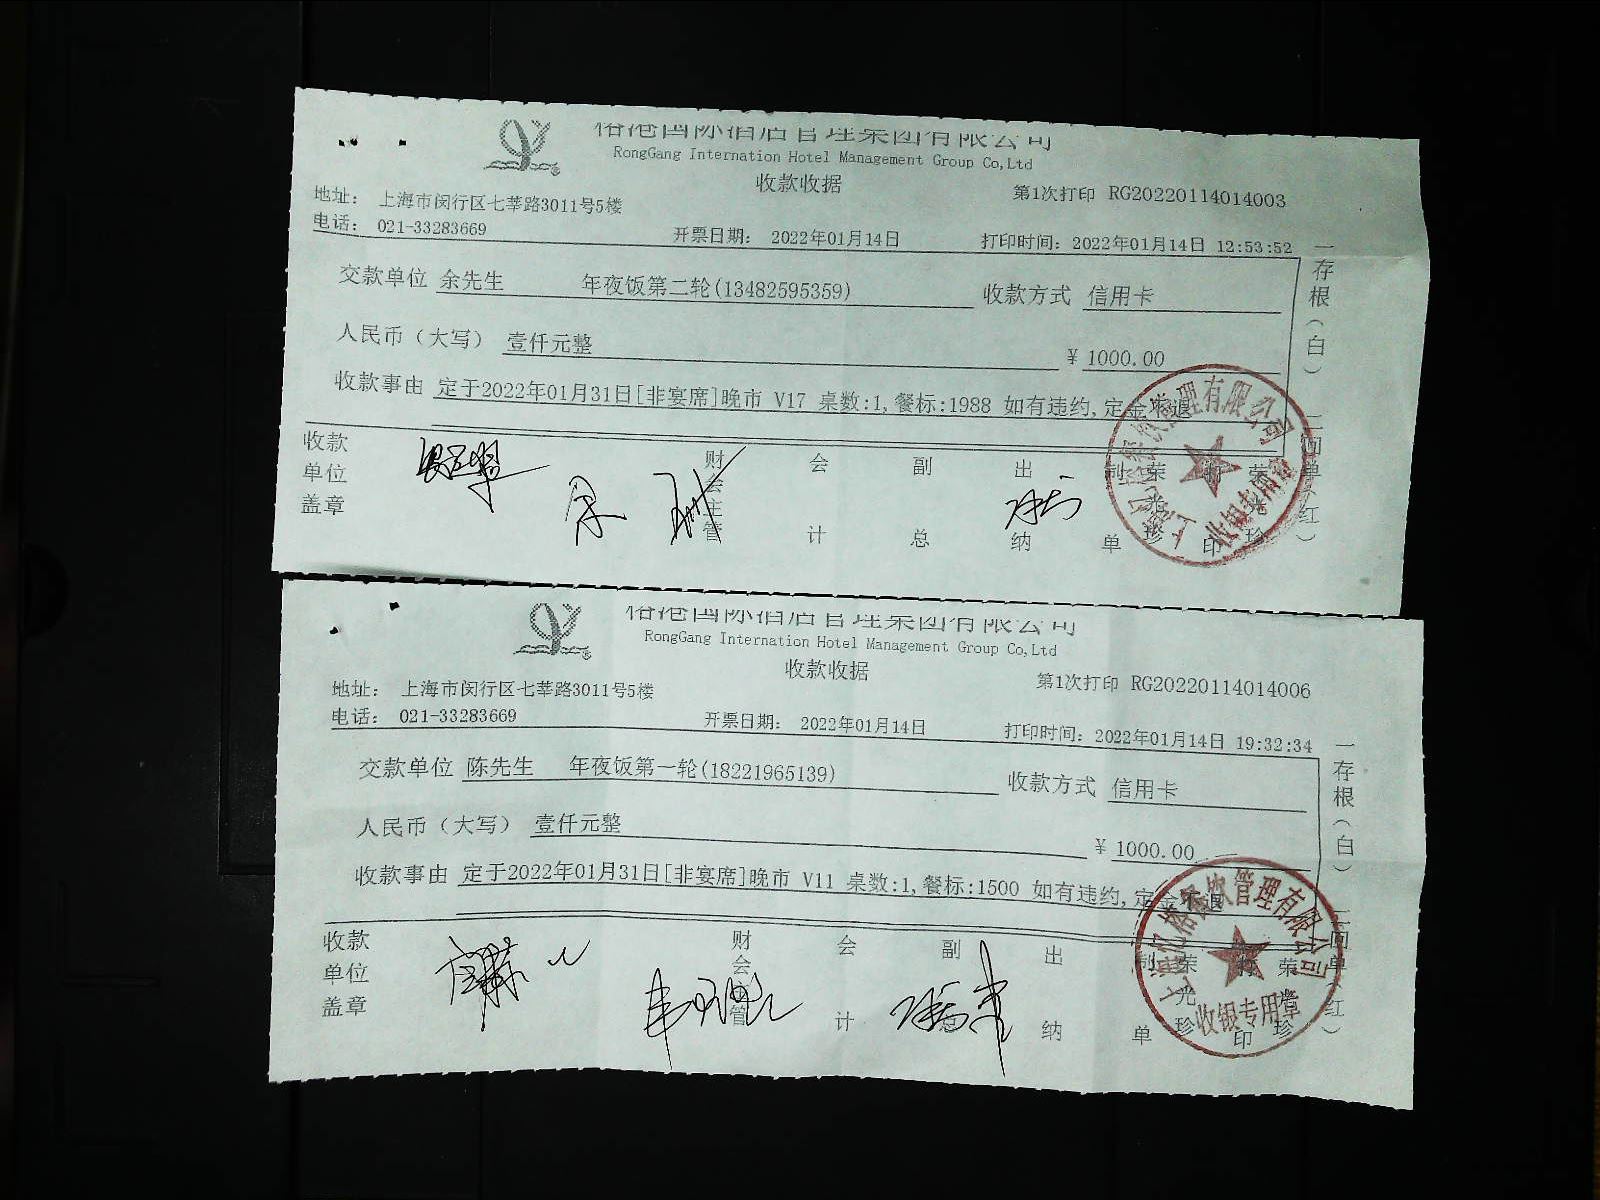 榕港国际酒店管理集团有限公司
RongGang Internation Hotel Management Group Co,Ltd
收款收据
第1次打印 RG20220114014003
地址: 上海市闵行区七莘路3011号5楼
电话: 021-33283669 开票日期: 2022年01月14日 打印时间: 2022年01月14日 12:53:52
交款单位 余先生 年夜饭第二轮(13482595359) 收款方式 信用卡
人民币(大写) 壹仟元整 ¥ 1000.00
收款事由 定于2022年01月31日[非宴席]晚市 V17 桌数:1,餐标:1988 如有违约,定金不退
收款单位盖章 财会主管 会计 副总 出纳 制单 荣光珍 打印 荣光珍
一存根(白) 二回单(红)
收银专用章
榕港国际酒店管理集团有限公司
RongGang Internation Hotel Management Group Co,Ltd
收款收据
第1次打印 RG20220114014006
地址: 上海市闵行区七莘路3011号5楼
电话: 021-33283669 开票日期: 2022年01月14日 打印时间: 2022年01月14日 19:32:34
交款单位 陈先生 年夜饭第一轮(18221965139) 收款方式 信用卡
人民币(大写) 壹仟元整 ¥ 1000.00
收款事由 定于2022年01月31日[非宴席]晚市 V11 桌数:1,餐标:1500 如有违约,定金不退
收款单位盖章 财会主管 会计 副总 出纳 制单 荣光珍 打印 荣光珍
一存根(白) 二回单(红)
收银专用章